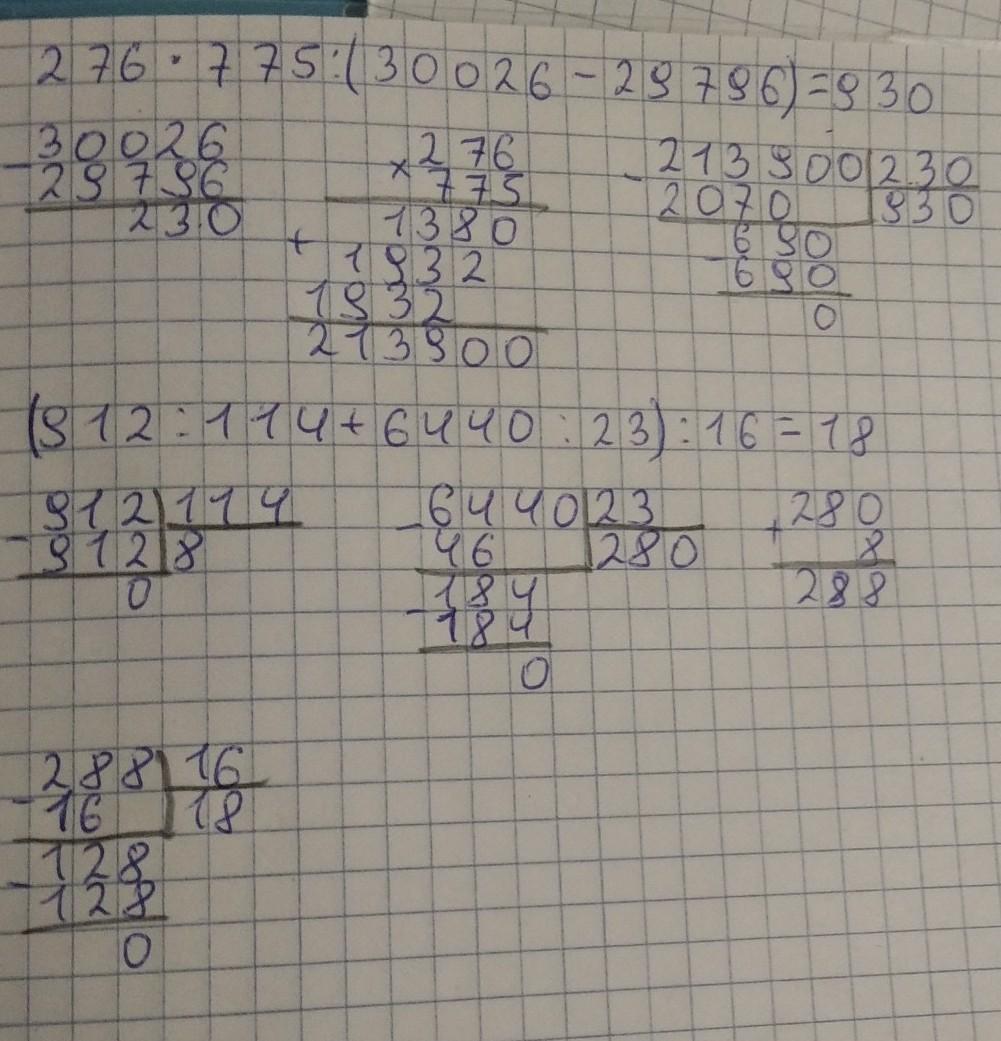 276·775:(30026-29796)=930
-30026 ×276 -213900|230
29796 775 2070 930
230 1380 690
+ 1932 -690
1932 0
213900
(912:114+6440:23):16=18
-912|114 -6440|23 +280
912 8 46 280 8
0 184 288
-184
0
-288|16
16 18
-128
128
0